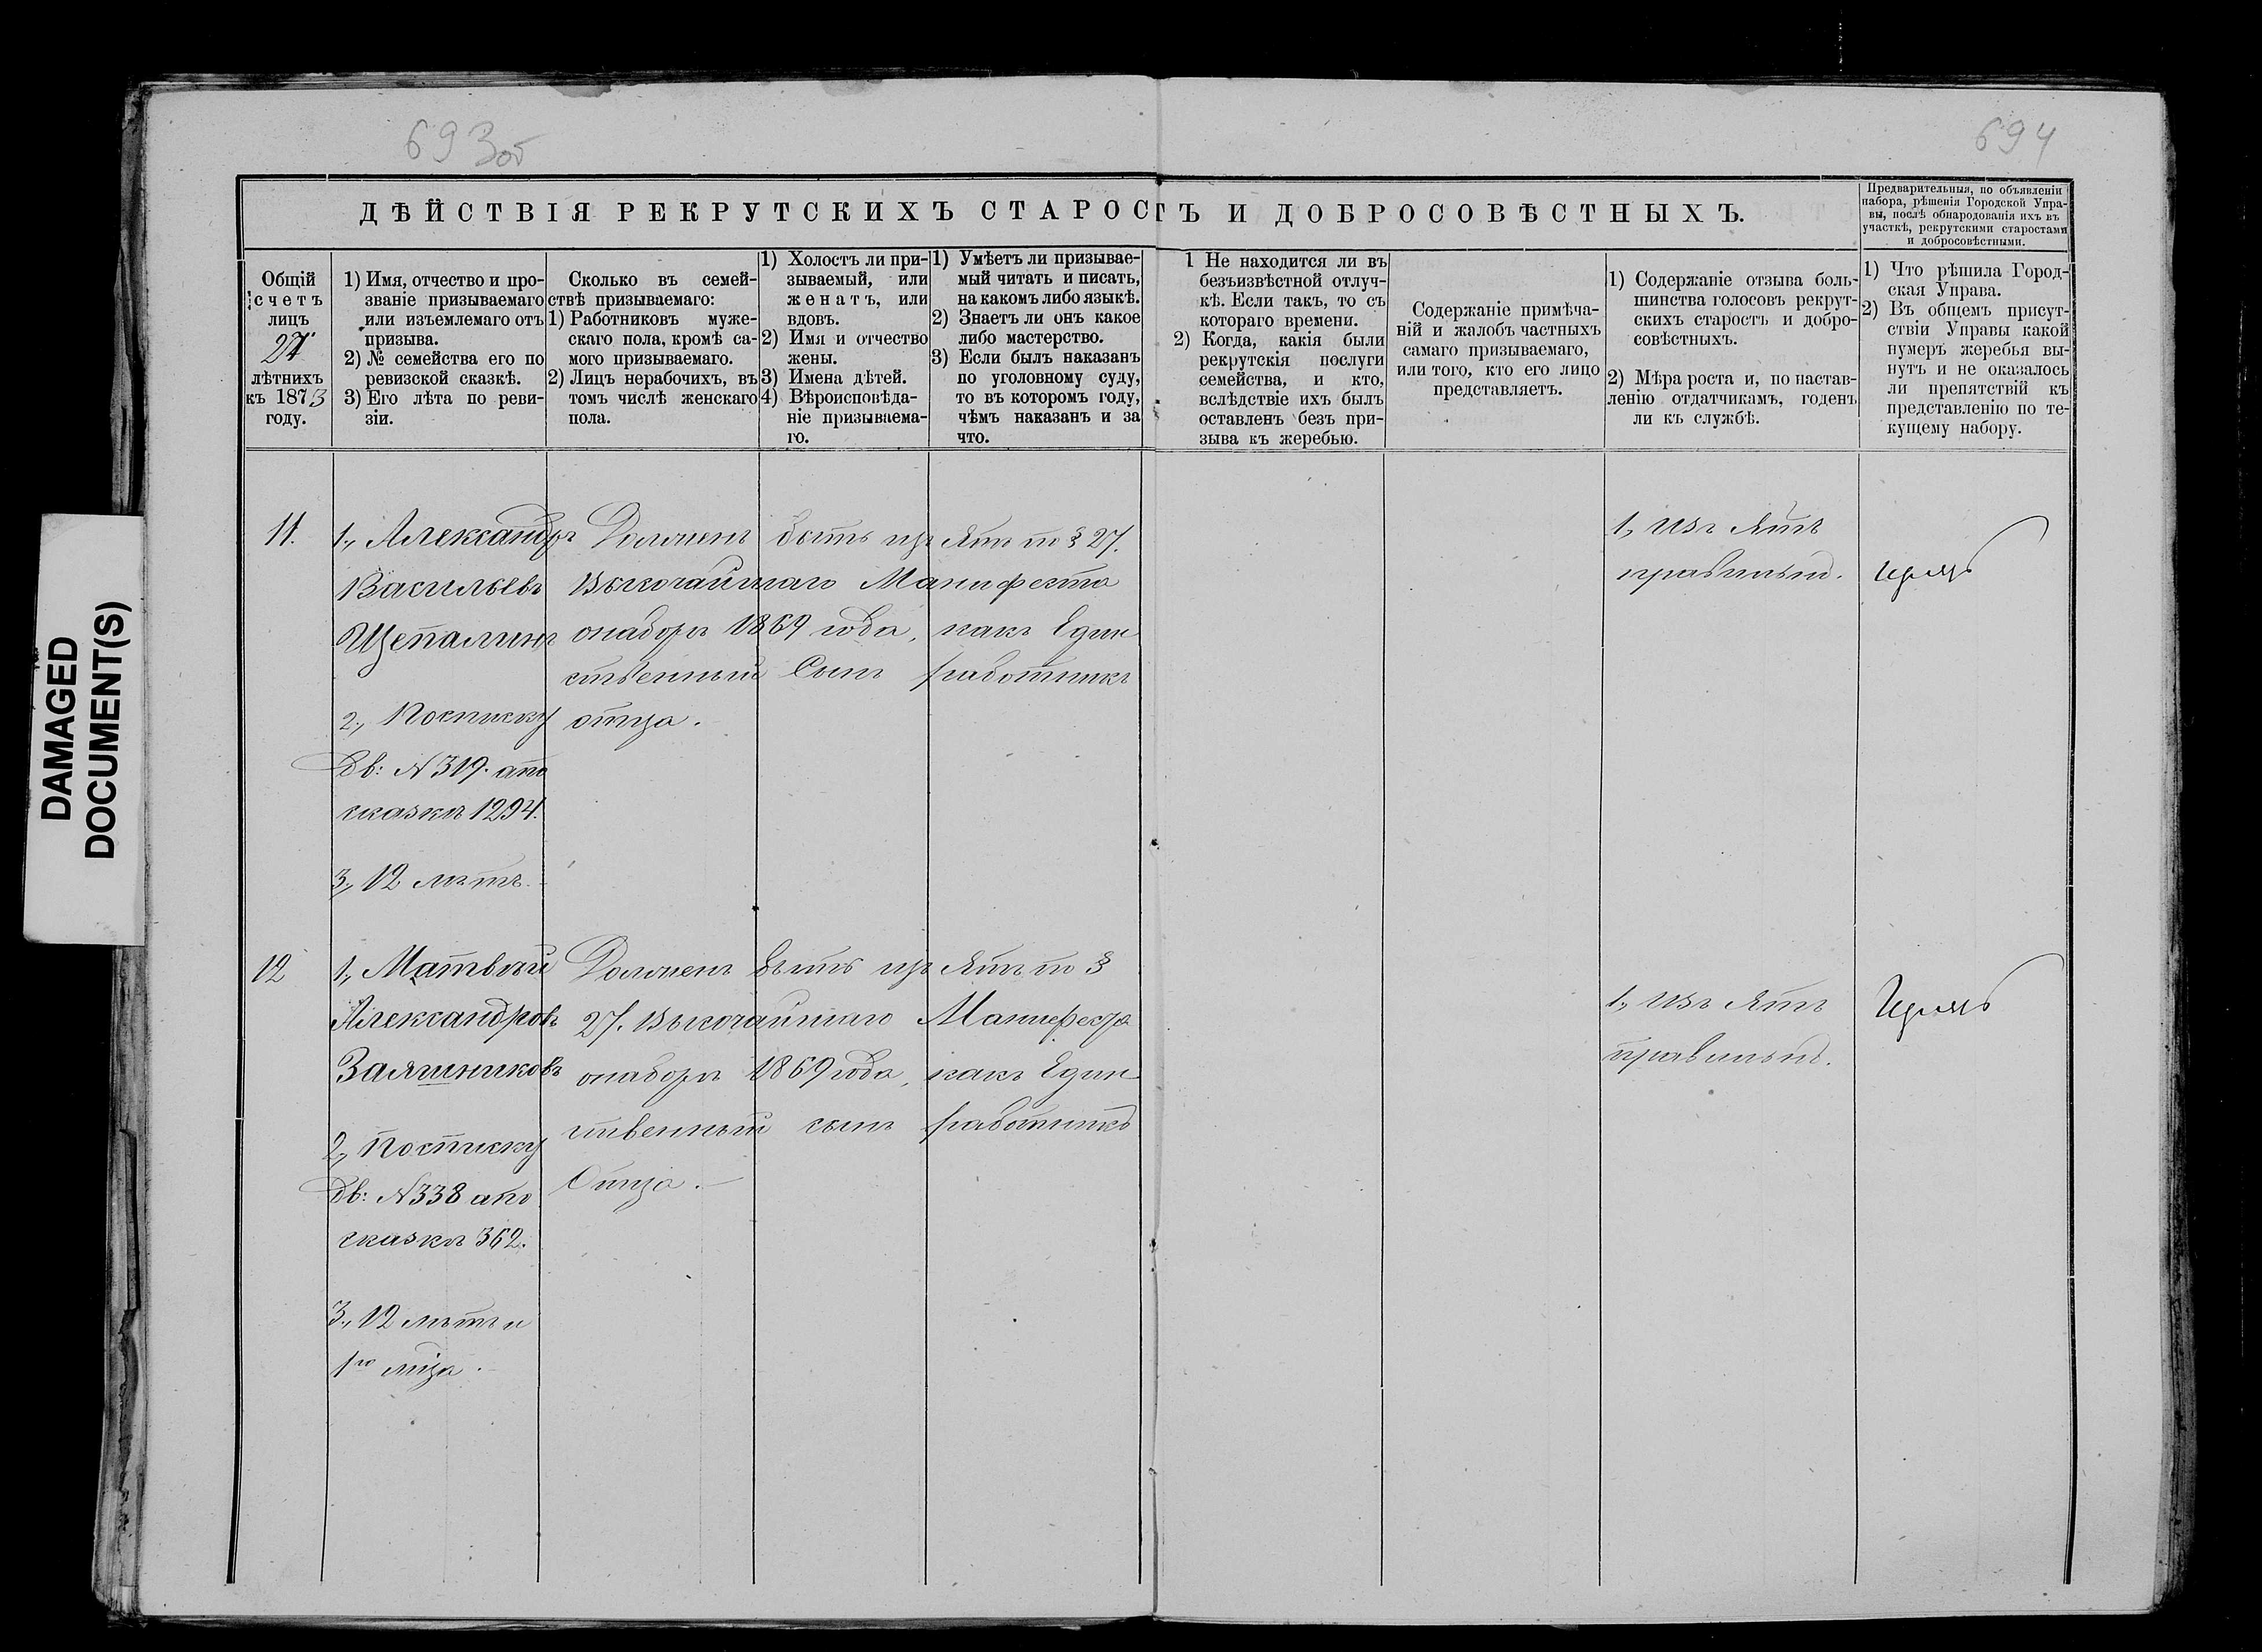 693об
694
ДѢЙСТВІЯ РЕКРУТСКИХЪ СТАРОСТЪ И ДОБРОСОВѢСТНЫХЪ.
Предварительныя, по объявленіи
набора, рѣшенія Городской Упра-
вы, послѣ обнародованія ихъ въ
участкѣ, рекрутскими старостами
и добросовѣстными.
Общій
счетъ
лицъ
21
лѣтнихъ
къ 1873
году.
1) Имя, отчество и про-
званіе призываемаго
или изъемлемаго отъ
призыва.
2) № семейства его по
ревизской сказкѣ.
3) Его лѣта по реви-
зіи.
Сколько въ семей-
ствѣ призываемаго:
1) Работниковъ муже-
скаго пола, кромѣ са-
мого призываемаго.
2) Лицъ нерабочихъ, въ
томъ числѣ женскаго
пола.
1) Холостъ ли при-
зываемый, или
женатъ, или
вдовъ.
2) Имя и отчество
жены.
3) Имена дѣтей.
4) Вѣроисповѣда-
ніе призываема-
го.
1) Умѣетъ ли призывае-
мый читать и писать,
на какомъ либо языкѣ.
2) Знаетъ ли онъ какое
либо мастерство.
3) Если былъ наказанъ
по уголовному суду,
то въ которомъ году,
чѣмъ наказанъ и за
что.
1 Не находится ли въ
безъизвѣстной отлуч-
кѣ. Если такъ, то съ
котораго времени.
2) Когда, какія были
рекрутскія послуги
семейства, и кто,
вслѣдствіе ихъ былъ
оставленъ безъ при-
зыва къ жеребью.
Содержаніе примѣча-
ній и жалобъ частныхъ
самаго призываемаго,
или того, кто его лицо
представляетъ.
1) Содержаніе отзыва боль-
шинства голосовъ рекрут-
скихъ старостъ и добро-
совѣстныхъ.
2) Мѣра роста и, по настав-
ленію отдатчикамъ, годенъ
ли къ службѣ.
1) Что рѣшила Город-
ская Управа.
2) Въ общемъ присут-
ствіи Управы какой
нумеръ жеребья вы-
нутъ и не оказалось
ли препятствій къ
представленію по те-
кущему набору.
11.
1., Александръ
Васильевъ
Щепалинъ
2., Посписку
Дв: N 319. апо
сказкѣ 1294.
3., 12 лѣтъ.
Долженъ быть изъ ятъ по § 27.
Высочайшаго Манифеста
онаборѣ 1869 года, какъ Един
ственный Сынъ работникъ
отца.
1., Изъ Ятъ
правильно.
12
1., Матвѣй
Александровъ
Залящиковъ
2., Посписку
Дв: N 338 апо
сказкѣ 362.
3., 12 лѣтъ и
1го мца.
Долженъ быть изъ Ятъ по §
27. Высочайшаго Манифеста
онаборѣ 1869 года, какъ Един
ственный сынъ работникъ
Отца.
1., Изъ Ятъ
правильно.
DAMAGED
DOCUMENT(S)